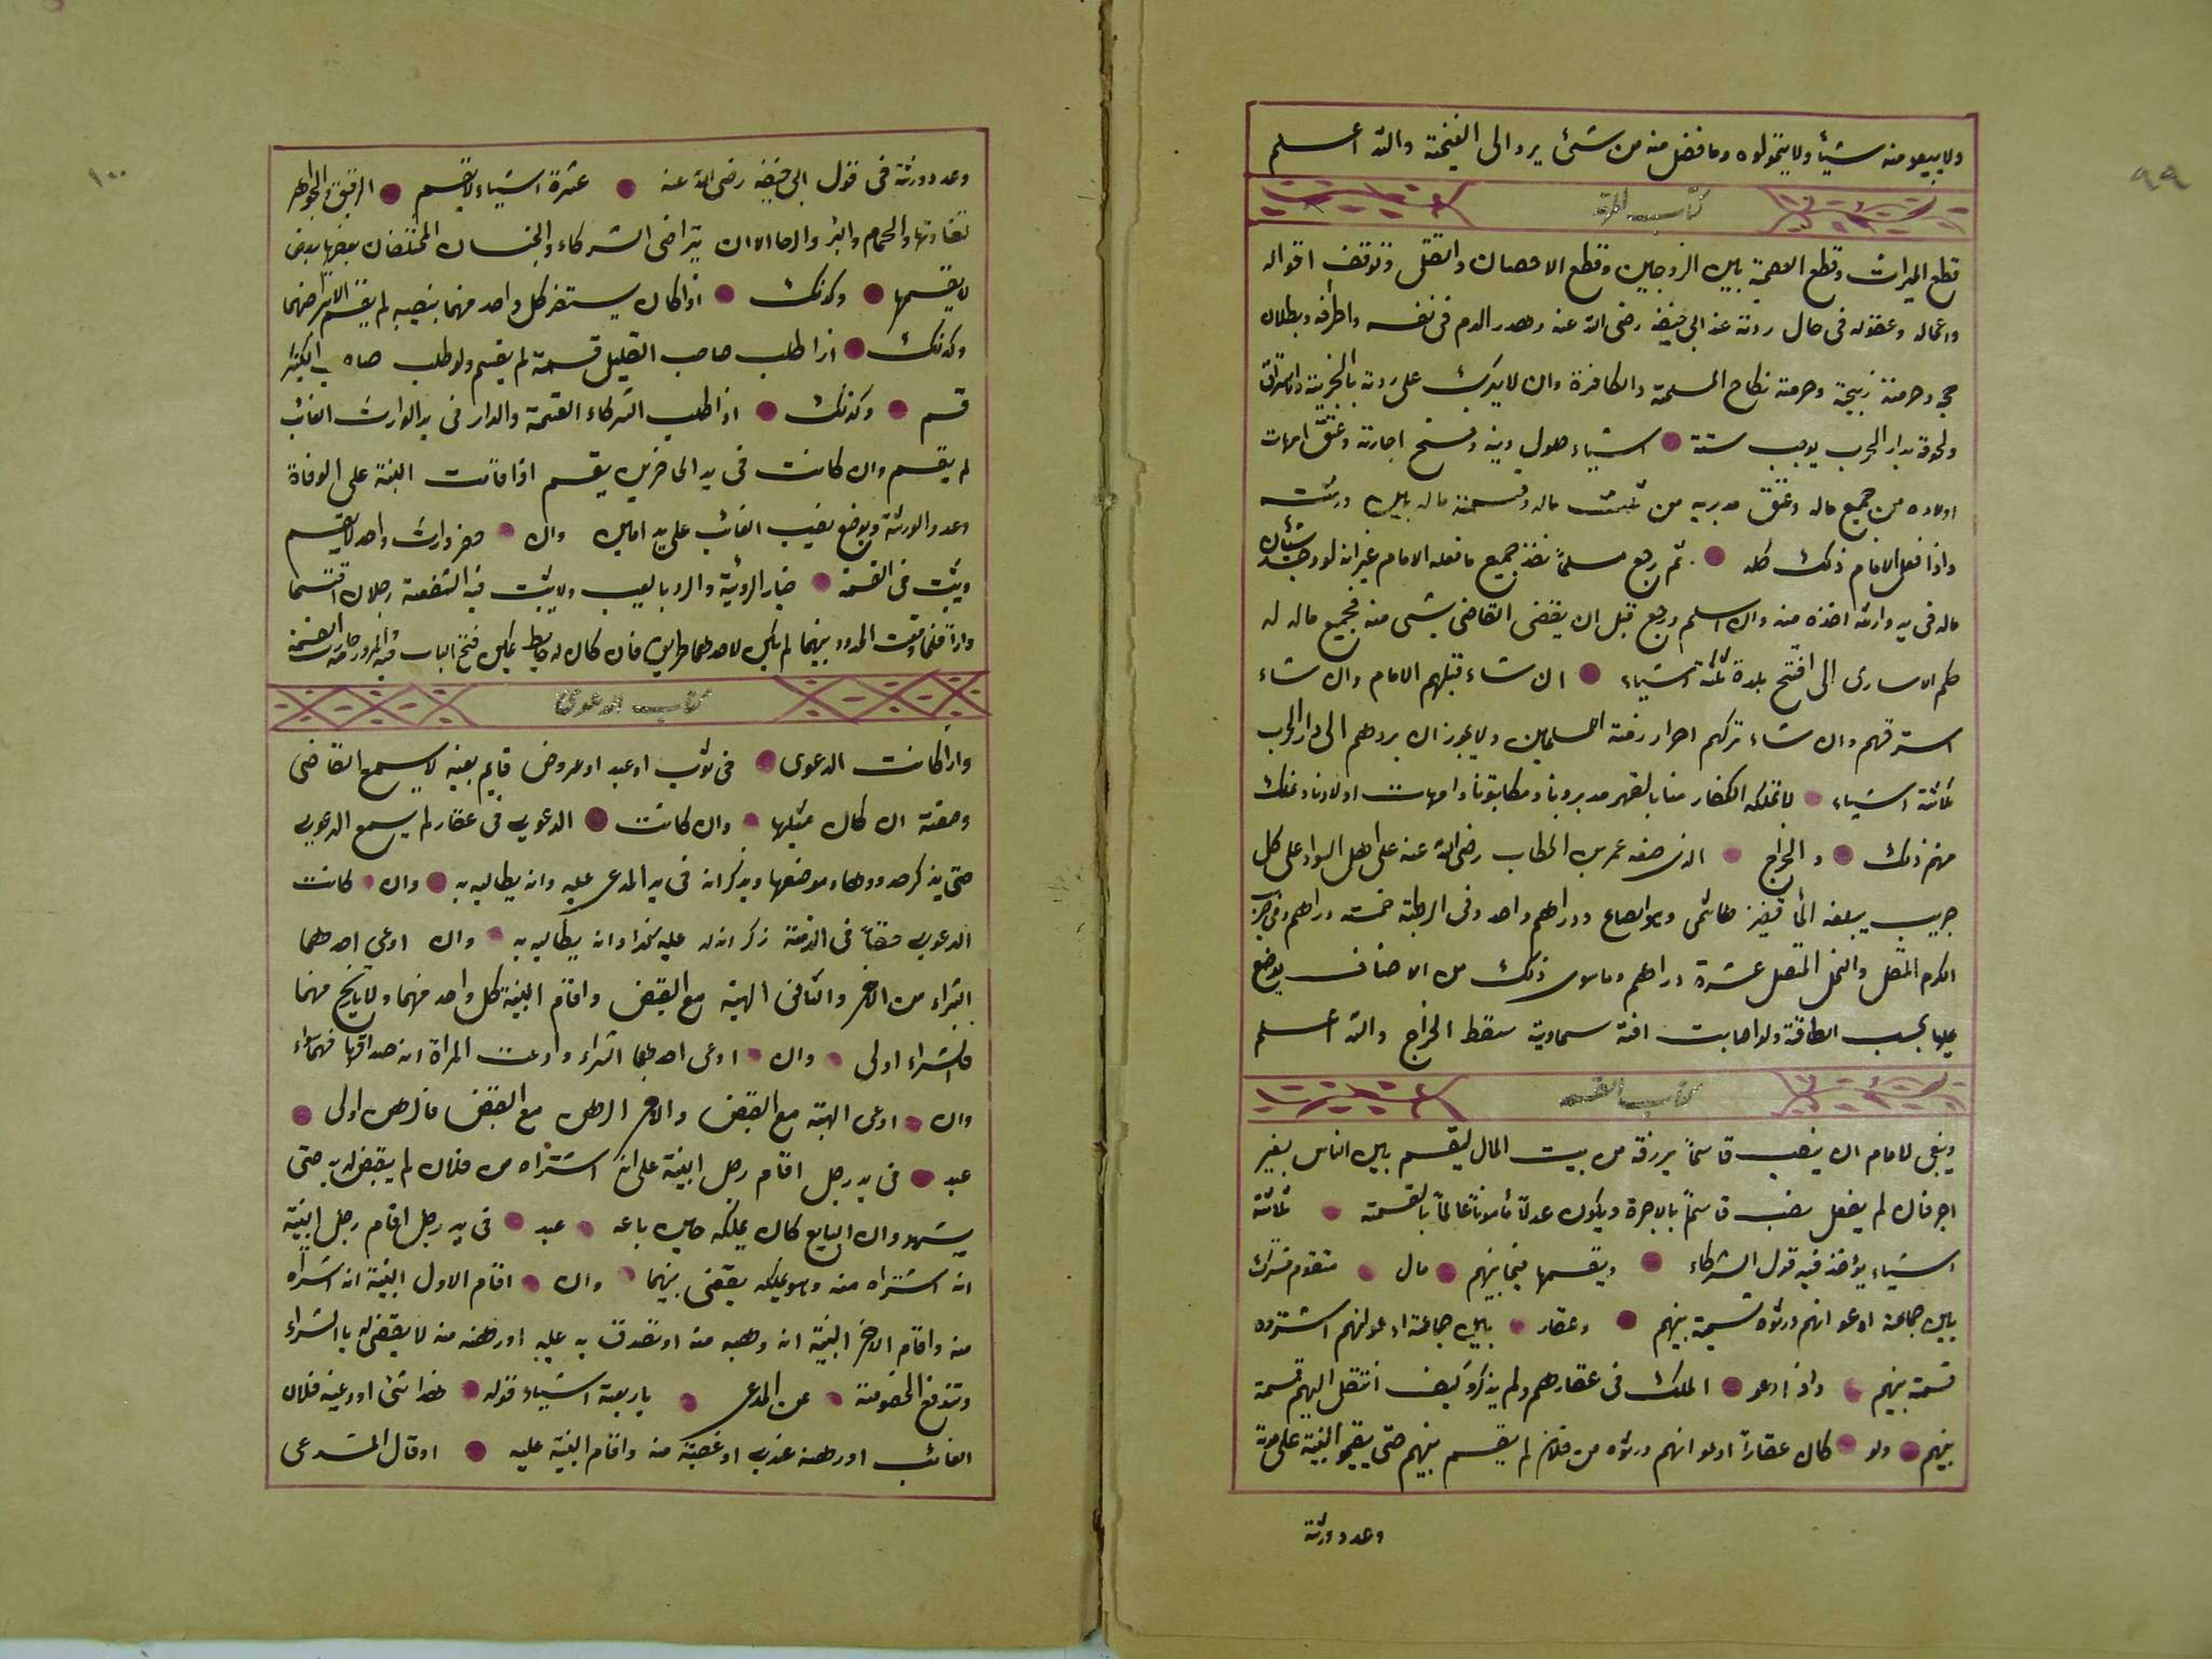 ٩٩
ولا يبيعو منه شيأ ولا يتمولوه وما فضل منه من شئ يرد الى الغنيمة والله اعلم
كتاب
قطع الميراث وقطع العصمة بين الزوجين وقطع الاحصان والقتل وتوقف اقواله
واعماله وعقوله فى حال ردته عند ابى حنيفه رضى الله عنه وهدر الدم فى نفسه واطرافه وبطلان
حج وحرمة زبيحته وحرمة نكاح المسلمة والكافرة وان لا يترك على ردته بالجزية والاسترقاق
ولحوقه بدار الحرب يوجب ستة اشياء حلول دينه وفسخ اجارته وعتق امهات
اولاده من جميع ماله وعتق مدبريه من ثلث ماله وقسمة ماله بين ورثته
واذا فعل الامام ذلك كله ثم رجع مسلماً نفذ جميع ما فعله الامام غير انه لو وجد شيئان
ماله فى يد وارثه اخذه منه وان اسلم ورجع قبل ان يقضى القاضى بشى منه فجميع ماله له
حكم الاسارى الى افتح بلدة ثلثة اشياء ان شاء قتلهم الامام وان شاء
استرقهم وان شاء تركهم احرار ذمة المسلمين ولا يجوز ان يردهم الى دار الحرب
ثلثة اشياء لا تملكه الكفار منا بالقهر مدبرونا ومكاتبونا وامهات اولادنا ونملك
منهم ذلك والخراج الذى ضعه عمر بن الخطاب رضى الله عنه على اهل السواد على كل
جريب يبلغه الماء قفيز هاشمى وهو الصاع ودراهم واحد وفى الرطبة خمسة دراهم وفى جريب
الكرم المتصل والنخل المتصل عشرة دراهم وما سوى ذلك من الاصناف يوضع
عليها بحسب الطاقة ولو اصابت افة سماوية سقط الخراج والله اعلم
كتاب القسمة
وينبغى للامام ان ينصب قاسماً يرزقه من بيت المال ليقسم بين الناس بغير
اجر فان لم يفعل نصب قاسماً بالاجرة ويكون عدلاً مأموناً عالماً بالقسمة ثلاثة
اشياء يؤخذ فيه قول الشركاء ويقسمها فيما بينهم مال متقوم مشترك
بين جماعة ادعو انهم ورثوه قسمة بينهم وعقار بين جماعة ادعو انهم اشتروه
قسمة بينهم واذ ادعو الملك فى عقارهم ولم يذكرو كيف انتقل اليهم قسمة
بينهم ولو كان عقاراً ادعو انهم ورثوه من فلان لم يقسم بينهم حتى يقيمو البينة على موته
وعدد ورثته
١٠٠
وعدد ورثته فى قول ابى حنيفه رضى الله عنه عشرة اشياء لا يقسم الرقيق والجواهر
لتفاوتها والحمام والبئر والرحا الا ان يتراضى الشركاء والجنسان المختلفان بعضها بعض
لا يقسمها وكذلك اذا كان يستضر كل واحد منهما بنصيبه لم يقسم الا بتراضيهما
وكذلك اذا طلب صاحب القليل قسمة لم يقسم ولو طلب صاحب الكثير
قسم وكذلك اذا طلب الشركاء القسمة والدار فى يد الوارث الغائب
لم يقسم وان كانت فى يد الحاضرين يقسم اذا قامت البينة على الوفاة
وعدد الورثة ويوضع نصيب الغائب على يد امين وان حضر وارث واحد لم يقسم
ويثبت فى القسمة خيار الرؤية والرد بالعيب ولا يثبت فيه الشفعة رجلان اقتسما
داراً فلما وقعت الحدود بينهما لم يكن لاحدهما طريق فان كان له حايط يمكن فتح الباب فيه والمرور جازت القسمة
كتاب الدعوى
واذا كانت الدعوى فى ثوب او عبد او عروض قايم بعينه لا يسمع القاضى
وصفته ان كان مثلها وان كانت الدعوى فى عقار لم يسمع الدعوى
حتى يذكر حدودها وموضعها ويذكر انه فى يد المدعى عليه وانه يطالبه به وان كانت
الدعوى حقاً فى الذمة ذكر انه له عليه كذا وانه يطالبه به وان ادعى احدهما
الشراء من الاخر والثانى الهبة مع القبض واقام البينة كل واحد منهما ولا تاريخ منهما
فالشراء اولى وان ادعى احدهما الشراء وادعت المراة انه صداقها فهما سواء
وان ادعى الهبة مع القبض والاخر الرهن مع القبض فالرهن اولى
عبد فى يد رجل اقام رجل البينة على انه اشتراه من فلان لم يقبض له به حتى
يشهدو ان البايع كان يملكه حين باعه عبد فى يد رجل اقام رجل البينة
انه اشتراه منه وهو يملكه يقضى بينهما وان اقام الاول البينة انه اشتراه
منه واقام الاخر البينة انه وهبه منه او تصدق به عليه او رهنه منه لا يقضى له بالشراء
وتندفع الخصومة عن المدعى باربعة اشياء قوله هذا شئ اودعنيه فلان
الغائب او رهنه عندى او غصبته منه واقام البينة عليه او قال المدعى